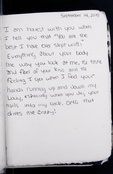 September 14, 2013
I am honest with you when
I tell you that "You are the
best I have ever slept with"
Everything about your body
the way you look at me, to taste
and feel of your kiss and to
feeling I get when I feel your
hands running up and down my
body, especially when you dig your
nails into my back. OMG that
drives me Crazy!